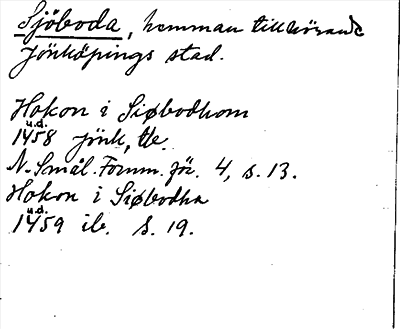 Sjöboda, hemman tillhörande
Jönköpings stad.
Hokon i Siøbodhom
u.d.
1458 Jönk, tb.
N. Smål. Fornm. för. 4, s. 13.
Hokon i Siøbodha
u.d.
1459 ib. S. 19.